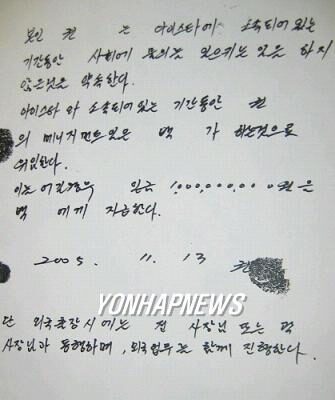 본인 권 는 아이스타에 소속되어 있는
기간동안 사회에 물의를 일으키는 일은 하지
않을것을 약속한다.
아이스타와 소속되어 있는 기간동안 권
의 매니지먼트 일은 백 가 하는것으로
위임한다.
이를 어길경우 일금 1,000,000,00 0원을
백 에게 지급한다.
2005. 11. 13 권
YONHAPNEWS
단 외국출장시에는 전 사장님 또는 백
사장님과 동행하며, 외국업무는 함께 진행한다.